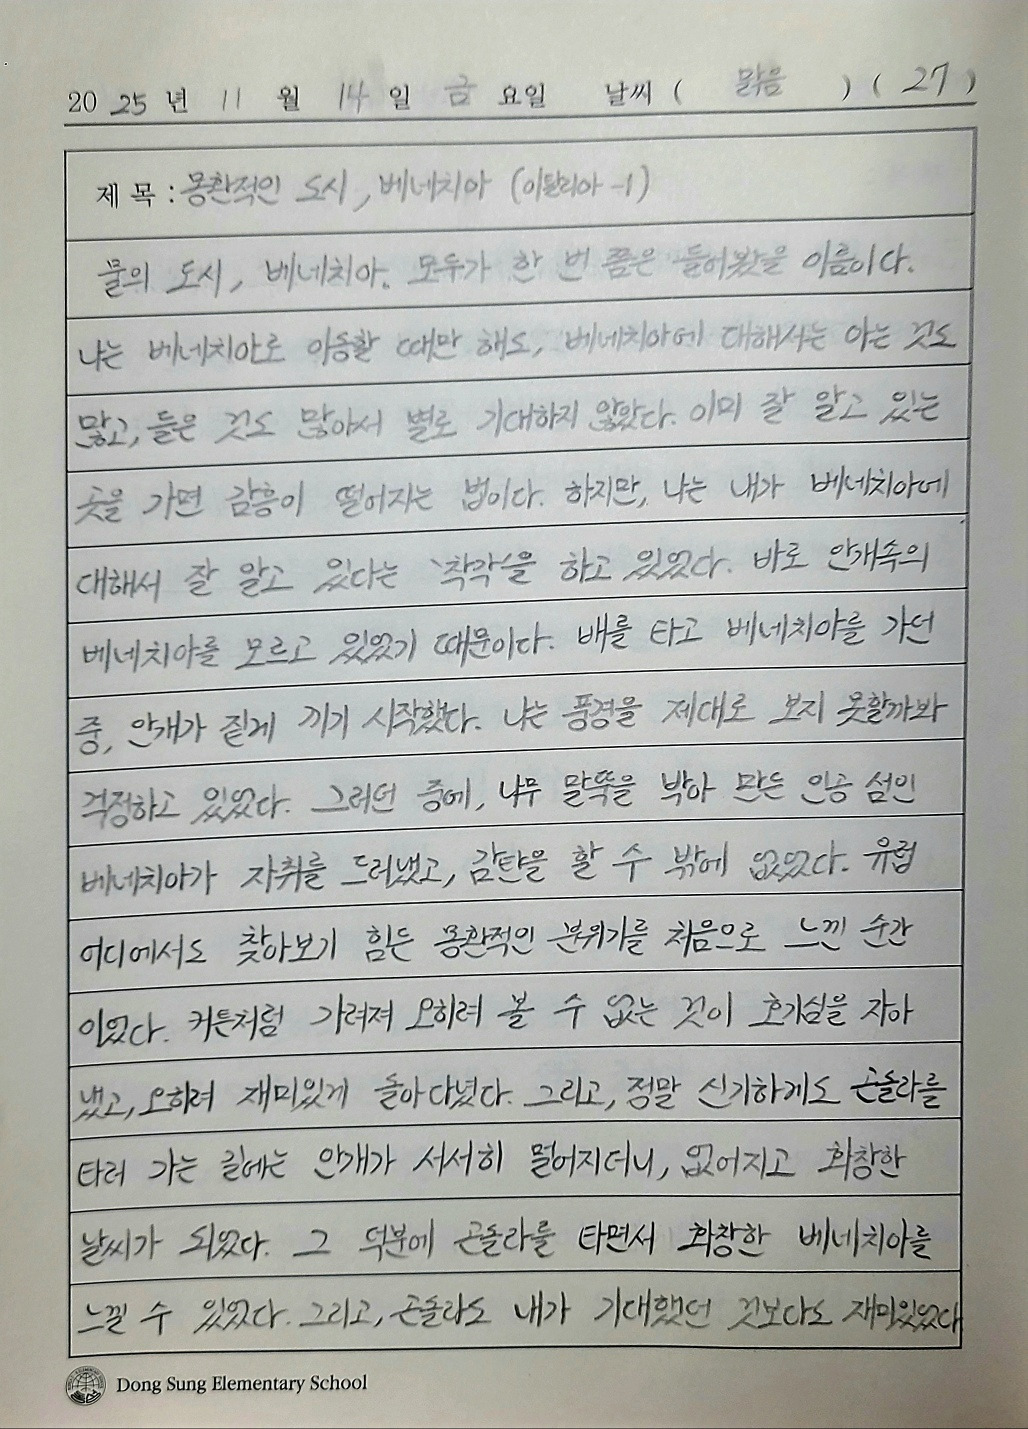 2025년 11월 14일 금요일 날씨 ( 맑음 ) ( 27 )
제 목 : 몽환적인 도시, 베네치아 (이탈리아 -1)
물의 도시, 베네치아. 모두가 한 번 쯤은 들어봤을 이름이다.
나는 베네치아로 이동할 때만 해도, 베네치아에 대해서는 아는 것도
많고, 들은 것도 많아서 별로 기대하지 않았다. 이미 잘 알고 있는
곳을 가면 감흥이 떨어지는 법이다. 하지만, 나는 내가 베네치아에
대해서 잘 알고 있다는 '착각'을 하고 있었다. 바로 안개속의
베네치아를 모르고 있었기 때문이다. 배를 타고 베네치아를 가던
중, 안개가 짙게 끼기 시작했다. 나는 풍경을 제대로 보지 못할까봐
걱정하고 있었다. 그러던 중에, 나무 말뚝을 박아 만든 인공 섬인
베네치아가 자취를 드러냈고, 감탄을 할 수 밖에 없었다. 유럽
어디에서도 찾아보기 힘든 몽환적인 분위기를 처음으로 느낀 순간
이었다. 커튼처럼 가려져 오히려 볼 수 없는 것이 호기심을 자아
냈고, 오히려 재미있게 돌아다녔다. 그리고, 정말 신기하게도 곤돌라를
타러 가는 길에는 안개가 서서히 멀어지더니, 없어지고 화창한
날씨가 되었다. 그 덕분에 곤돌라를 타면서 화창한 베네치아를
느낄 수 있었다. 그리고, 곤돌라도 내가 기대했던 것보다도 재미있었다
Dong Sung Elementary School